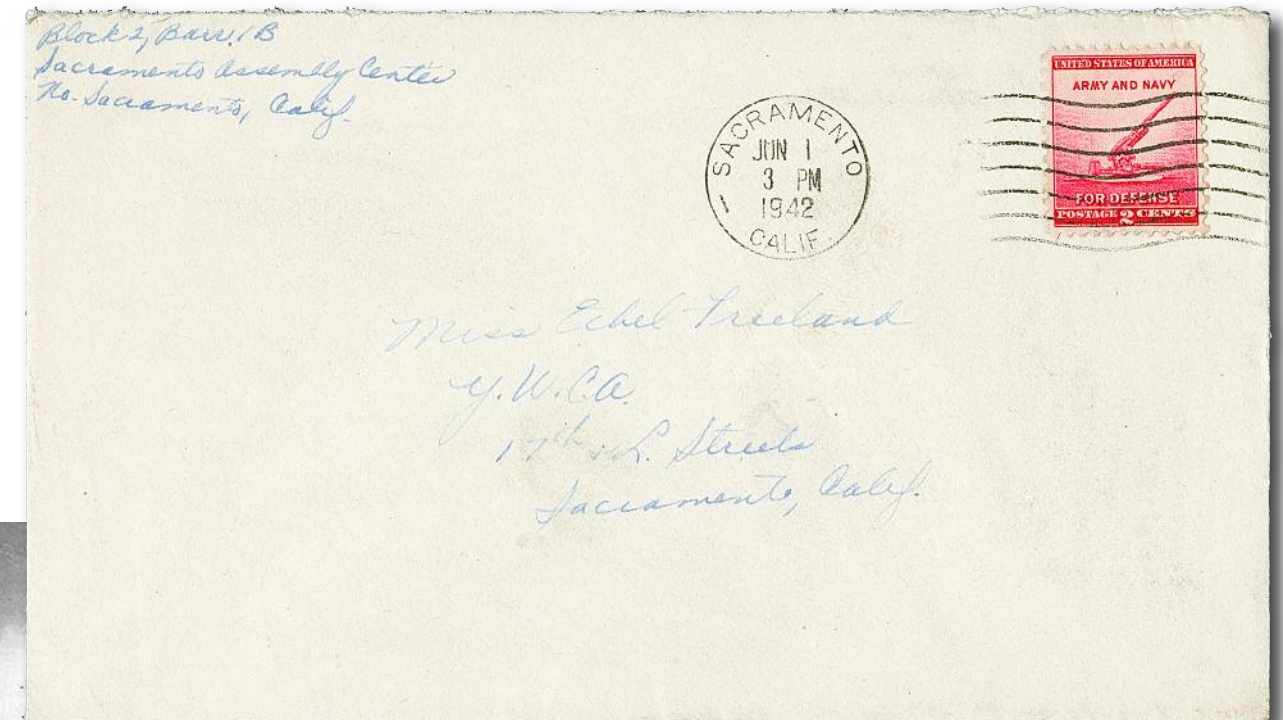 Block 2, Barr. 1B
Sacramento Assembly Center
No. Sacramento, Calif.
SACRAMENTO
JUN 1
3 PM
1942
CALIF.
1
UNITED STATES OF AMERICA
ARMY AND NAVY
FOR DEFENSE
POSTAGE 2 CENTS
Miss Ethel Freeland
Y.W.C.A.
17th & L. Streets
Sacramento, Calif.